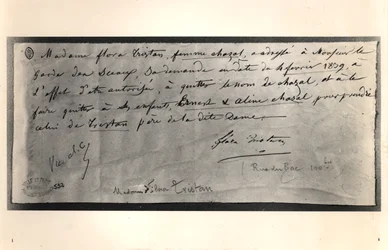 Madame flora Tristan, femme chazal, a adressé à Monsieur le
Garde des Sceaux, Sa demande en date du 4 fevrier 1839, à
l'effet d'etre autorisée, à quitter le nom de chazal, et à le
faire quitter à ses enfants, Ernest & aline chazal pour prendre
celui de Tristan père de la dite Dame.
flora Tristan
Rue du Bac
Madame Flora Tristan